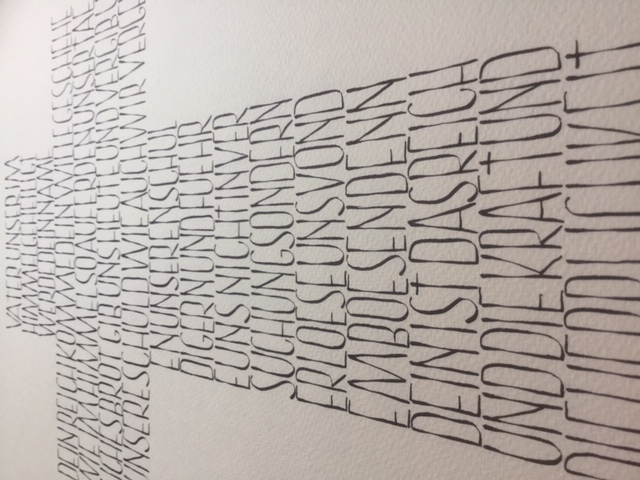 VATER UNSER IM
HIMMEL GEHEILIGT
WERDE DEIN NAME
DEIN REICH KOMME DEIN WILLE GESCHEHE
WIE IM HIMMEL SO AUF ERDEN UNSER TAE
LICHES BROT GIB UNS HEUTE UND VERGIB
UNSERE SCHULD WIE AUCH WIR VERGE
EN UNSEREN SCHUL
DIGERN UND FUEHR
E UNS NICHT IN VER
SUCHUNG SONDERN
ERLOESE UNS VON D
EM BOESEN DENN
DEIN IST DAS REICH
UND DIE KRAFT UND